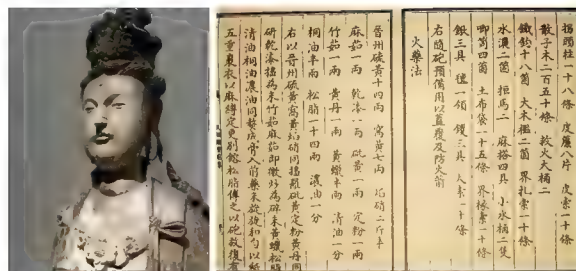 拐頭柱一十八條 皮簾八片 皮索一十條
散子木二百五十條 救火大桶二
鐵鈎十八箇 大木榲二箇 界扎索一十條
水濃二箇 拒馬二 麻搭四具 小水桶二隻
唧筒四箇 土布袋一十五條 界椽索一十條
鍬三具 氊一領 钁三具 火索一十條
右隨砲預備用以蓋覆及防火箭
火藥法
晉州硫黃十四兩 窩黃七兩 焰硝二斤半
麻茹一兩 乾漆一兩 砒黃一兩 定粉一兩
竹茹一兩 黃丹一兩 黃蠟半兩 清油一分
桐油半兩 松脂一十四兩 濃油一分
右以晉州硫黃窩黃焰硝同搗羅砒黃定粉黃丹同
研乾漆搗為末竹茹麻茹即微炒為碎末黃蠟松脂
清油桐油濃油同熬成膏入前藥末旋旋和勻以紙
五重裹衣以麻縛定更別鎔松脂傅之以砲放復有